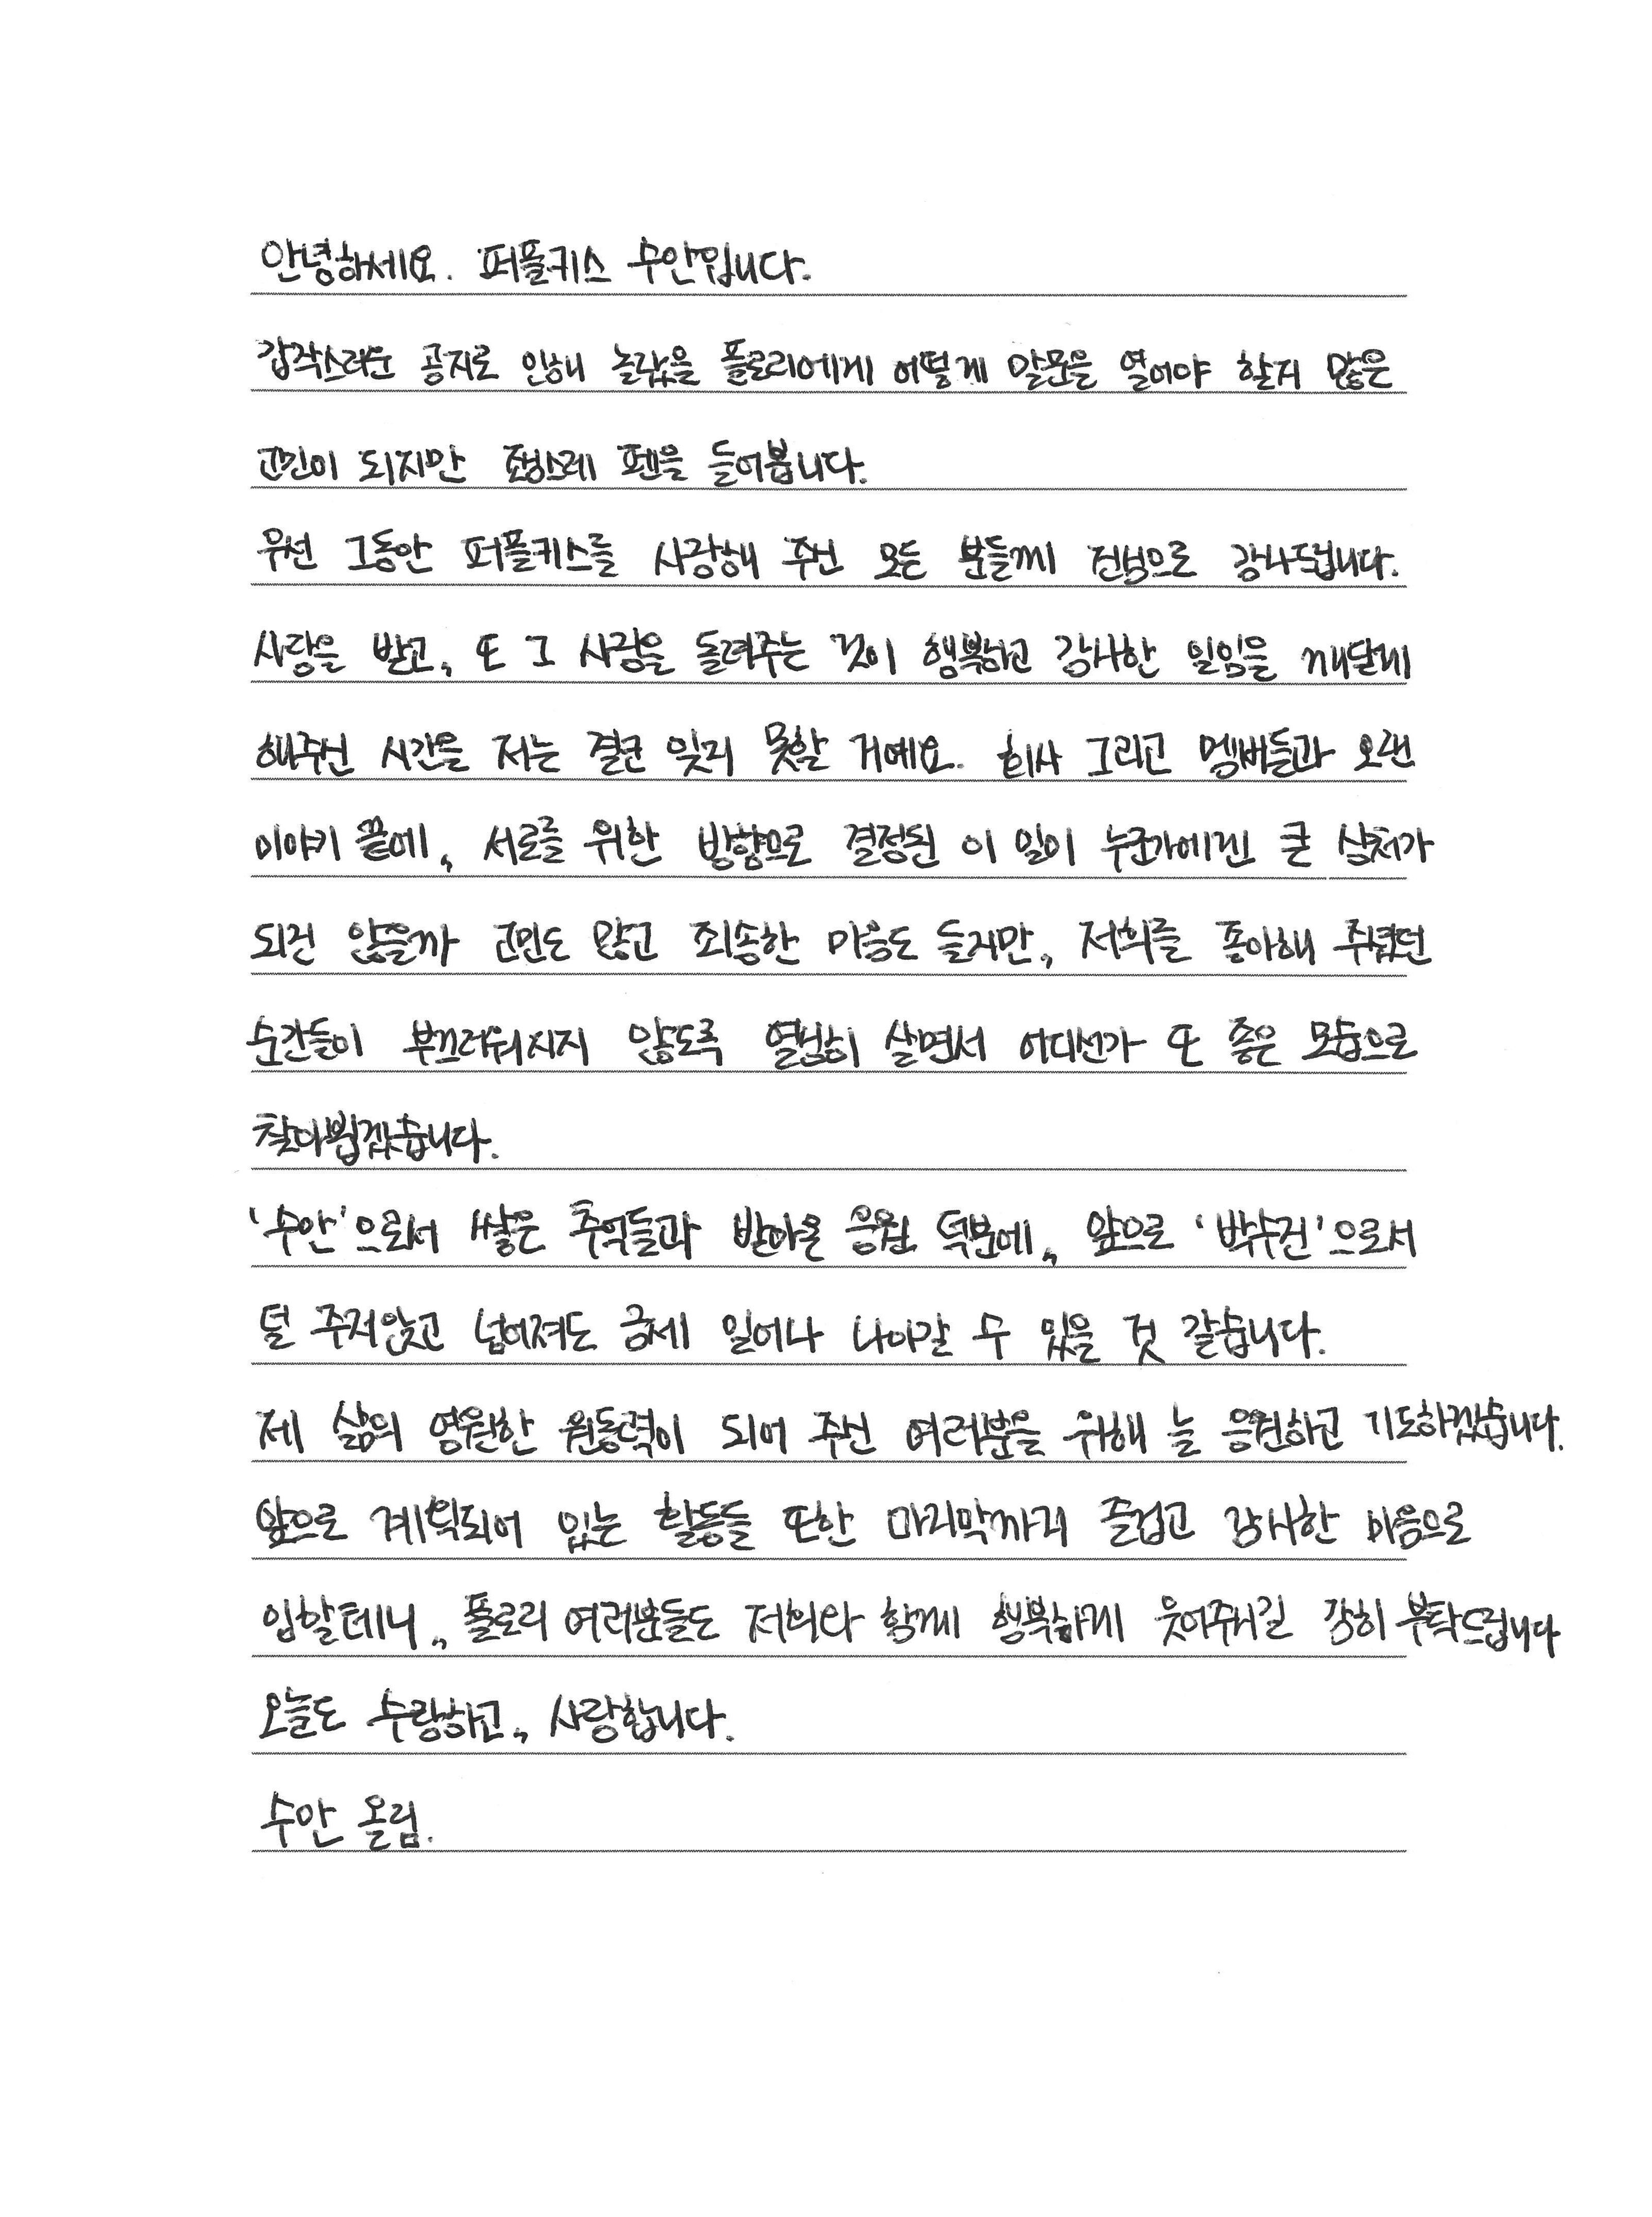 안녕하세요. 퍼플키스 수안입니다.
갑작스러운 공지로 인해 놀랐을 플로리에게 어떻게 말문을 열어야 할지 많은
고민이 되지만 조심스레 펜을 들어봅니다.
우선 그동안 퍼플키스를 사랑해 주신 모든 분들께 진심으로 감사드립니다.
사랑을 받고, 또 그 사랑을 돌려주는 것이 행복하고 감사한 일임을 깨닫게
해주신 시간을 저는 결코 잊지 못할 거예요. 회사 그리고 멤버들과 오랜
이야기 끝에, 서로를 위한 방향으로 결정된 이 일이 누군가에겐 큰 상처가
되진 않을까 고민도 많고 죄송한 마음도 들지만, 저희를 좋아해 주셨던
순간들이 부끄러워지지 않도록 열심히 살면서 어디선가 또 좋은 모습으로
찾아뵙겠습니다.
'수안'으로서 쌓은 추억들과 받아온 응원 덕분에, 앞으로 '박수진'으로서
덜 주저앉고 넘어져도 금세 일어나 나아갈 수 있을 것 같습니다.
제 삶의 영원한 원동력이 되어 주신 여러분을 위해 늘 응원하고 기도하겠습니다.
앞으로 계획되어 있는 활동들 또한 마지막까지 즐겁고 감사한 마음으로
임할테니, 플로리 여러분들도 저희와 함께 행복하게 웃어주시길 감히 부탁드립니다
오늘도 수랑하고, 사랑합니다.
수안 올림.